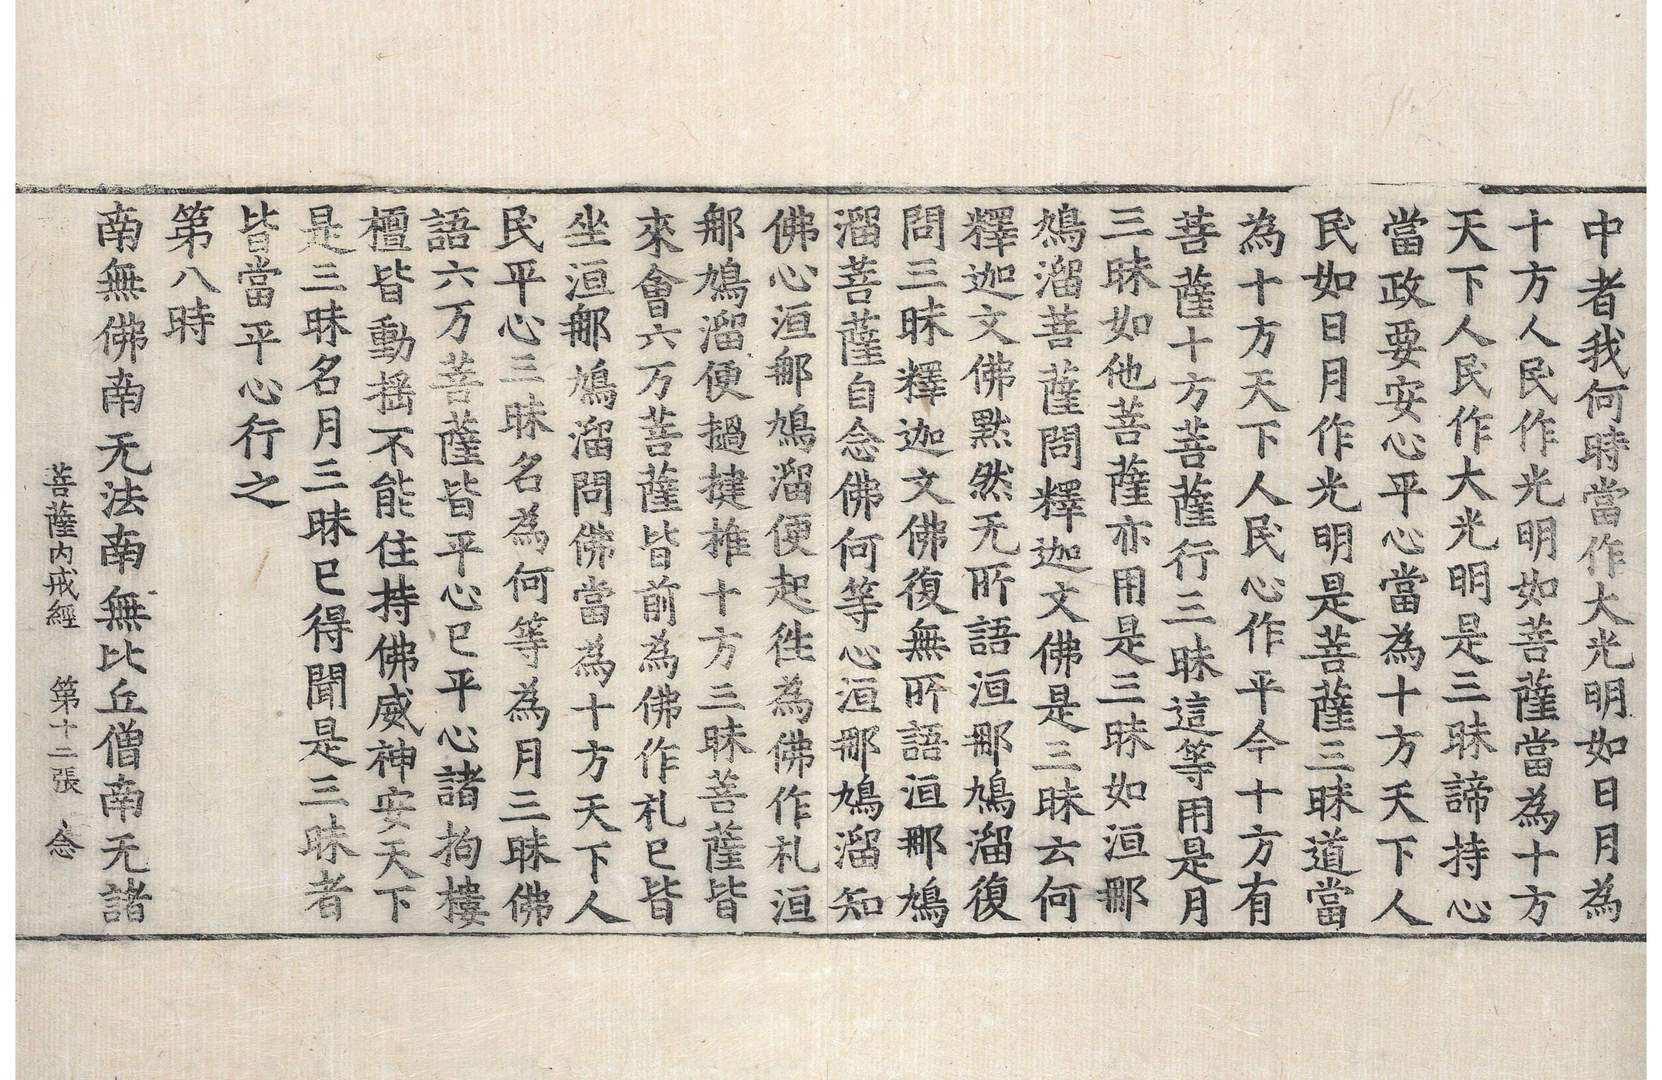 中者我何時當作大光明如日月為
十方人民作光明如菩薩當為十方
天下人民作大光明是三昧諦持心
當政要安心平心當為十方天下人
民如日月作光明是菩薩三昧道當
為十方天下人民心作平今十方有
菩薩十方菩薩行三昧這等用是月
三昧如他菩薩亦用是三昧如洹那
鳩溜菩薩問釋迦文佛是三昧云何
釋迦文佛默然无所語洹那鳩溜復
問三昧釋迦文佛復無所語洹那鳩
溜菩薩自念佛何等心洹那鳩溜知
佛心洹那鳩溜便起往為佛作礼洹
那鳩溜便撾揵椎十方三昧菩薩皆
來會六万菩薩皆前為佛作礼已皆
坐洹那鳩溜問佛當為十方天下人
民平心三昧名為何等為月三昧佛
語六万菩薩皆平心已平心諸拘樓
檀皆動搖不能住持佛威神安天下
是三昧名月三昧已得聞是三昧者
皆當平心行之
第八時
南無佛南无法南無比丘僧南无諸
菩薩內戒經 第十二張 念